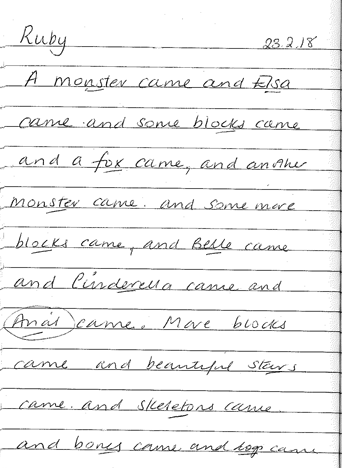 Ruby 23.2.18
A monster came and Elsa
came and some blocks came
and a fox came, and another
monster came. and some more
blocks came, and Belle came
and Cinderella came and
came. More blocks
came and beautiful stars
came. and skeletons came
and bones came and dogs came